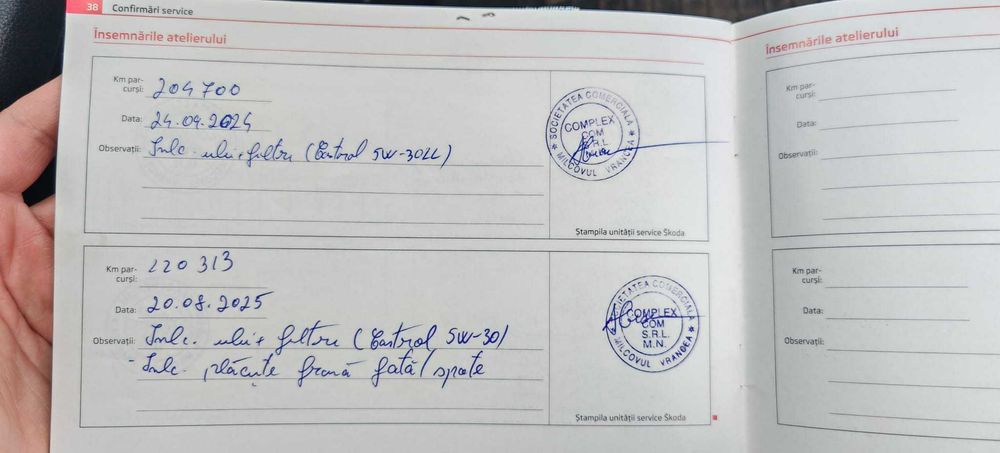 38 Confirmări service
Însemnările atelierului
Km par-
curși: 204 700
Data: 24.04.2024
Observații: Înlc. ulei + filtru (Castrol 5W-30LL)
SOCIETATEA COMERCIALĂ
COMPLEX
COM
S.R.L.
MILCOVUL VRANCEA
Ștampila unității service Škoda
Km par-
curși: 220 313
Data: 20.08.2025
Observații: Înlc. ulei + filtru (Castrol 5W-30)
- Înlc. plăcuțe frână față/spate
SOCIETATEA COMERCIALĂ
COMPLEX
COM
S.R.L.
M.N.
MILCOVUL VRANCEA
Ștampila unității service Škoda
Însemnările atelierului
Km par-
curși:
Data:
Observații:
Km par-
curși:
Data:
Observații: